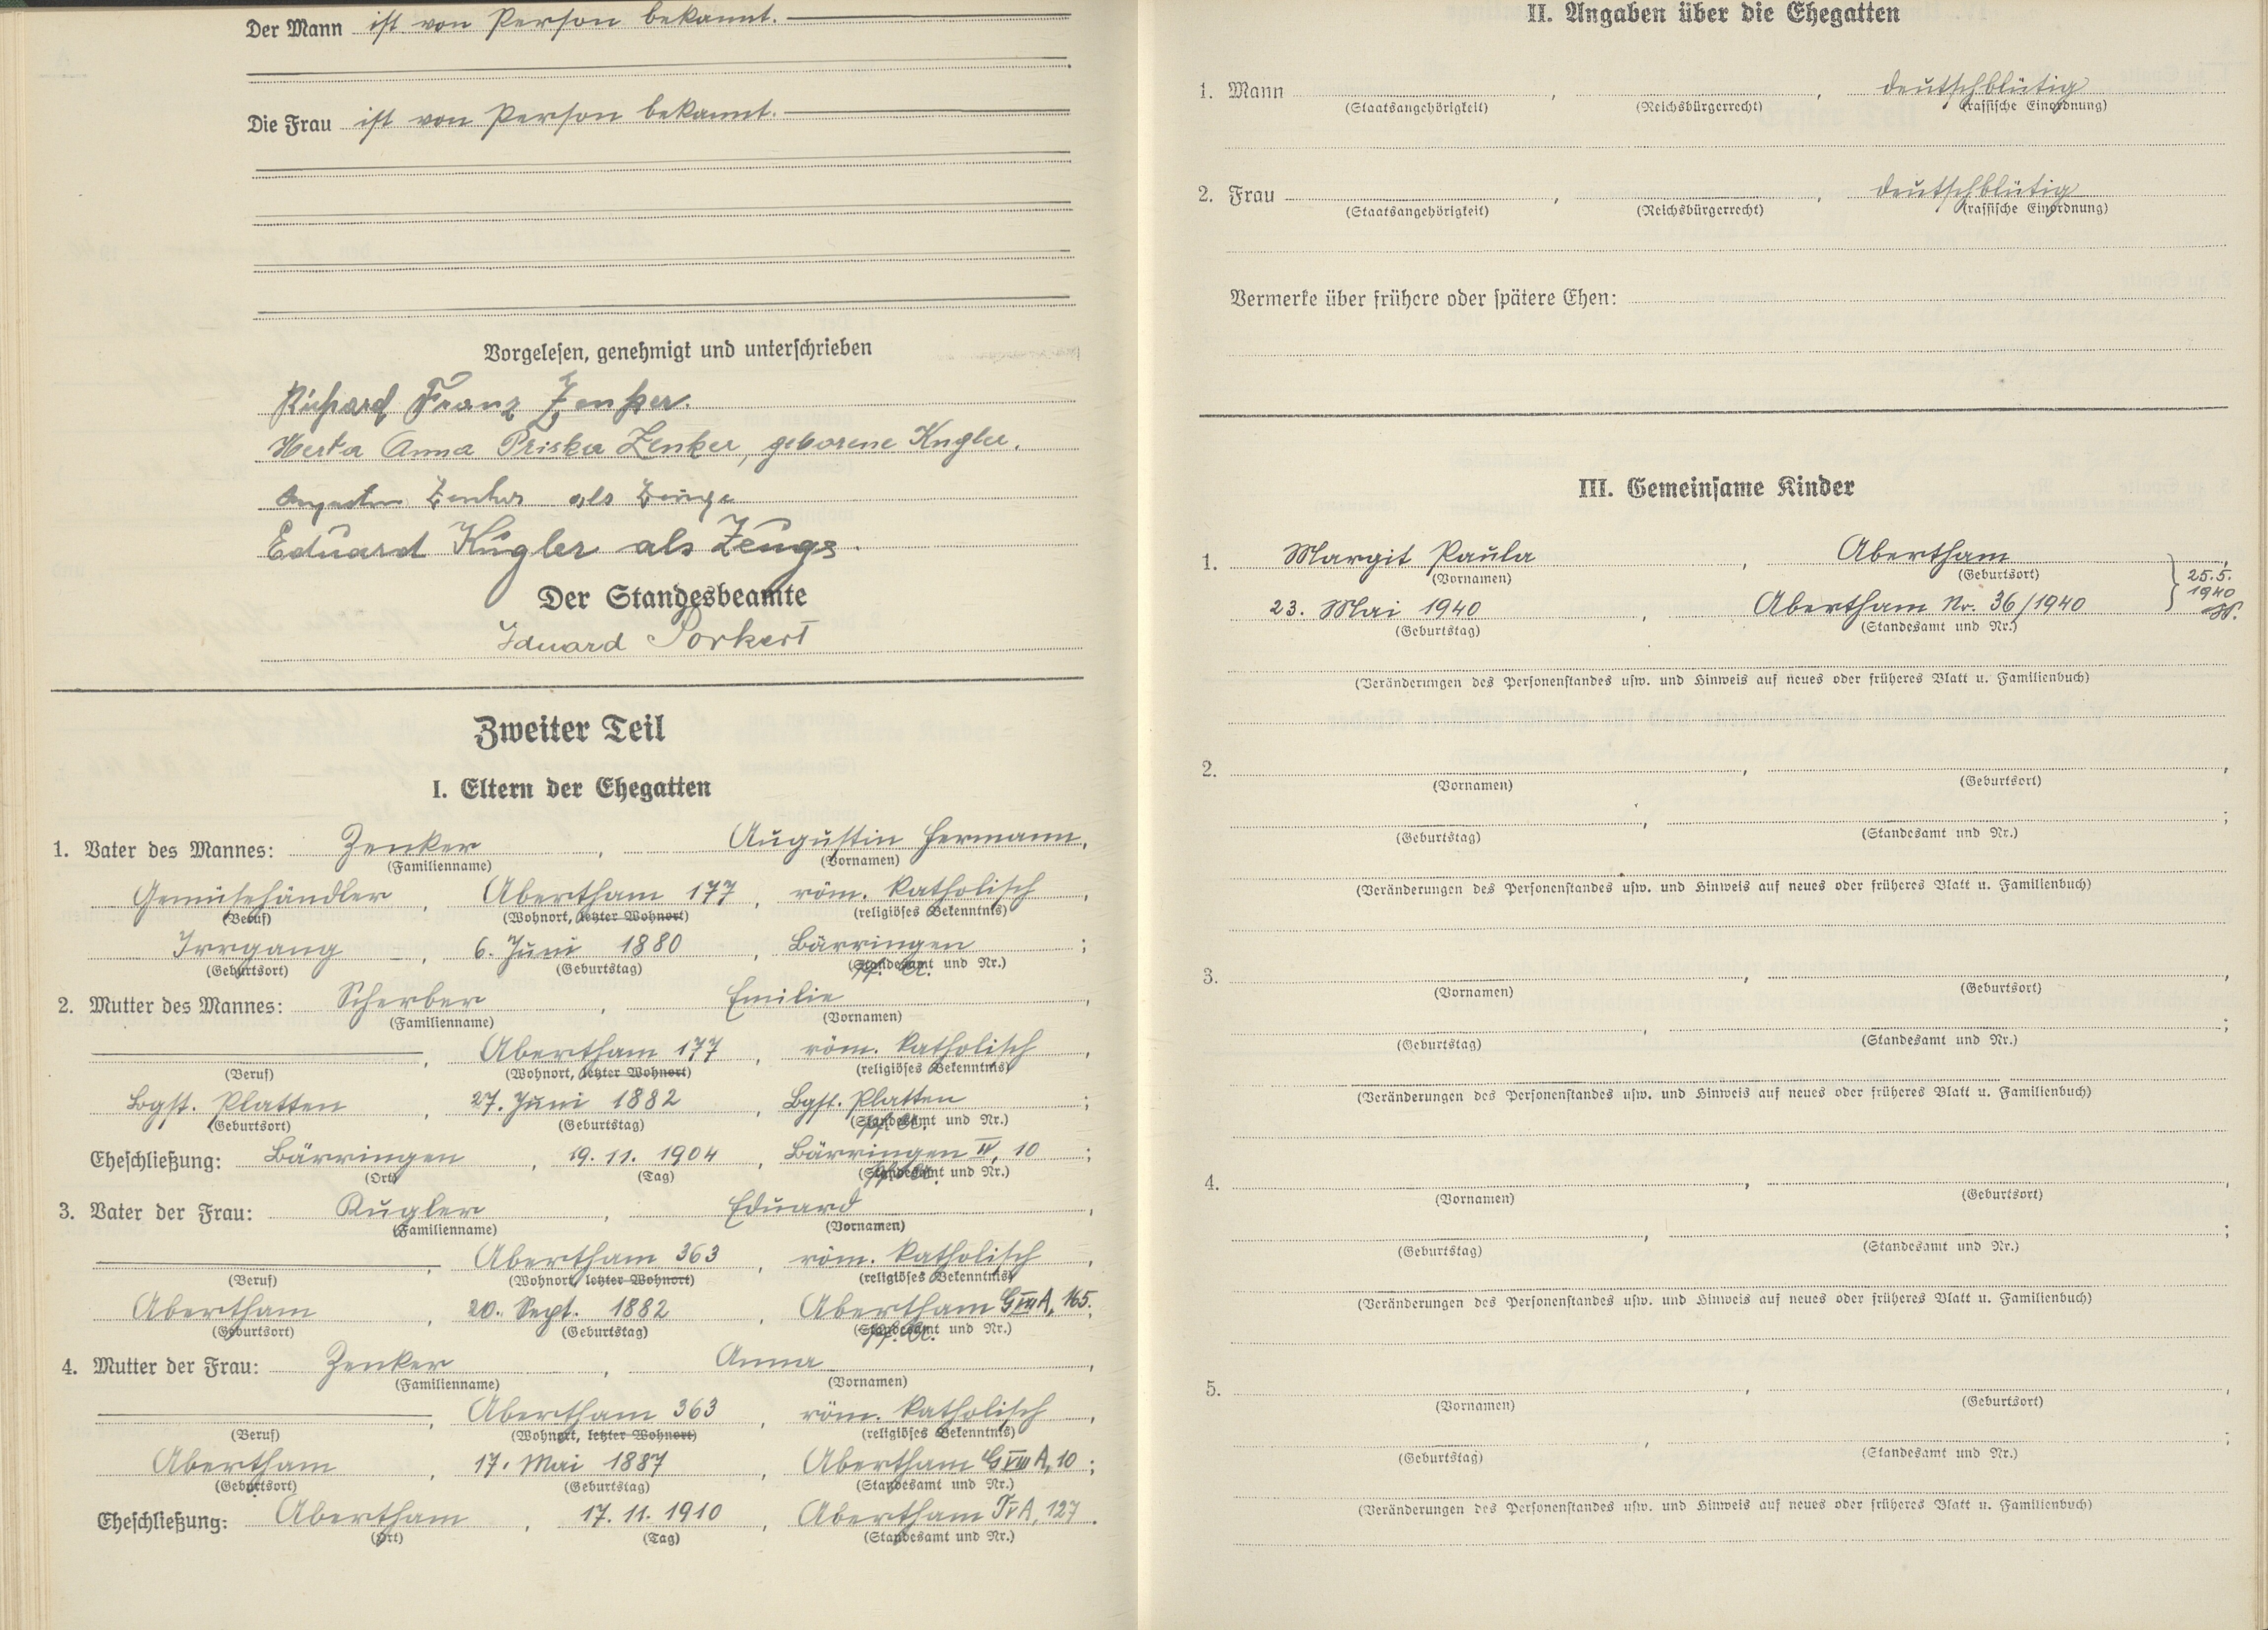 Der Mann ist von Person bekannt.
Die Frau ist von Person bekannt.
Vorgelesen, genehmigt und unterschrieben
Richard Franz Zenker.
Herta Anna Priska Zenker, geborene Kugler.
Zenker als Zeuge
Eduard Kugler als Zeuge.
Der Standesbeamte
Eduard Porkert
Zweiter Teil
I. Eltern der Ehegatten
1. Vater des Mannes: Zenker, Augustin Hermann,
(Familienname) (Vornamen)
Gemüsehändler, Abertham 177, röm. katholisch,
(Beruf) (Wohnort, letzter Wohnort) (religiöses Bekenntnis)
Irrgang, 6. Juni 1880, Bärringen;
(Geburtsort) (Geburtstag) (Standesamt und Nr.)
2. Mutter des Mannes: Scherber, Emilie,
(Familienname) (Vornamen)
, Abertham 177, röm. katholisch,
(Beruf) (Wohnort, letzter Wohnort) (religiöses Bekenntnis)
Bgst. Platten, 27. Juni 1882, Bgst. Platten;
(Geburtsort) (Geburtstag) (Standesamt und Nr.)
Eheschließung: Bärringen, 19. 11. 1904, Bärringen IV, 10;
(Ort) (Tag) (Standesamt und Nr.)
3. Vater der Frau: Kugler, Eduard,
(Familienname) (Vornamen)
, Abertham 363, röm. katholisch,
(Beruf) (Wohnort, letzter Wohnort) (religiöses Bekenntnis)
Abertham, 20. Sept. 1882, Abertham G VII A, 165.
(Geburtsort) (Geburtstag) (Standesamt und Nr.)
4. Mutter der Frau: Zenker, Anna,
(Familienname) (Vornamen)
, Abertham 363, röm. katholisch,
(Beruf) (Wohnort, letzter Wohnort) (religiöses Bekenntnis)
Abertham, 17. Mai 1887, Abertham G VIII A, 10;
(Geburtsort) (Geburtstag) (Standesamt und Nr.)
Eheschließung: Abertham, 17. 11. 1910, Abertham T V A, 127.
(Ort) (Tag) (Standesamt und Nr.)
II. Angaben über die Ehegatten
1. Mann , , deutschblütig
(Staatsangehörigkeit) (Reichsbürgerrecht) (rassische Einordnung)
2. Frau , , deutschblütig
(Staatsangehörigkeit) (Reichsbürgerrecht) (rassische Einordnung)
Vermerke über frühere oder spätere Ehen:
III. Gemeinsame Kinder
1. Margit Paula, Abertham,
(Vornamen) (Geburtsort)
25. 5.
1940
23. Mai 1940, Abertham Nr. 36/1940
(Geburtstag) (Standesamt und Nr.)
(Veränderungen des Personenstandes usw. und Hinweis auf neues oder früheres Blatt u. Familienbuch)
2. , ,
(Vornamen) (Geburtsort)
, ;
(Geburtstag) (Standesamt und Nr.)
(Veränderungen des Personenstandes usw. und Hinweis auf neues oder früheres Blatt u. Familienbuch)
3. , ,
(Vornamen) (Geburtsort)
, ;
(Geburtstag) (Standesamt und Nr.)
(Veränderungen des Personenstandes usw. und Hinweis auf neues oder früheres Blatt u. Familienbuch)
4. , ,
(Vornamen) (Geburtsort)
, ;
(Geburtstag) (Standesamt und Nr.)
(Veränderungen des Personenstandes usw. und Hinweis auf neues oder früheres Blatt u. Familienbuch)
5. , ,
(Vornamen) (Geburtsort)
, ;
(Geburtstag) (Standesamt und Nr.)
(Veränderungen des Personenstandes usw. und Hinweis auf neues oder früheres Blatt u. Familienbuch)